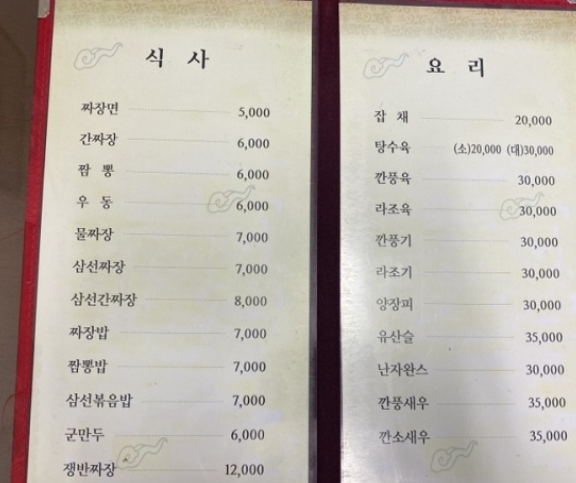 식 사
짜장면 5,000
간짜장 6,000
짬 뽕 6,000
우 동 6,000
물짜장 7,000
삼선짜장 7,000
삼선간짜장 8,000
짜장밥 7,000
짬뽕밥 7,000
삼선볶음밥 7,000
군만두 6,000
쟁반짜장 12,000
요 리
잡 채 20,000
탕수육 (소)20,000 (대)30,000
깐풍육 30,000
라조육 30,000
깐풍기 30,000
라조기 30,000
양장피 30,000
유산슬 35,000
난자완스 30,000
깐풍새우 35,000
깐소새우 35,000